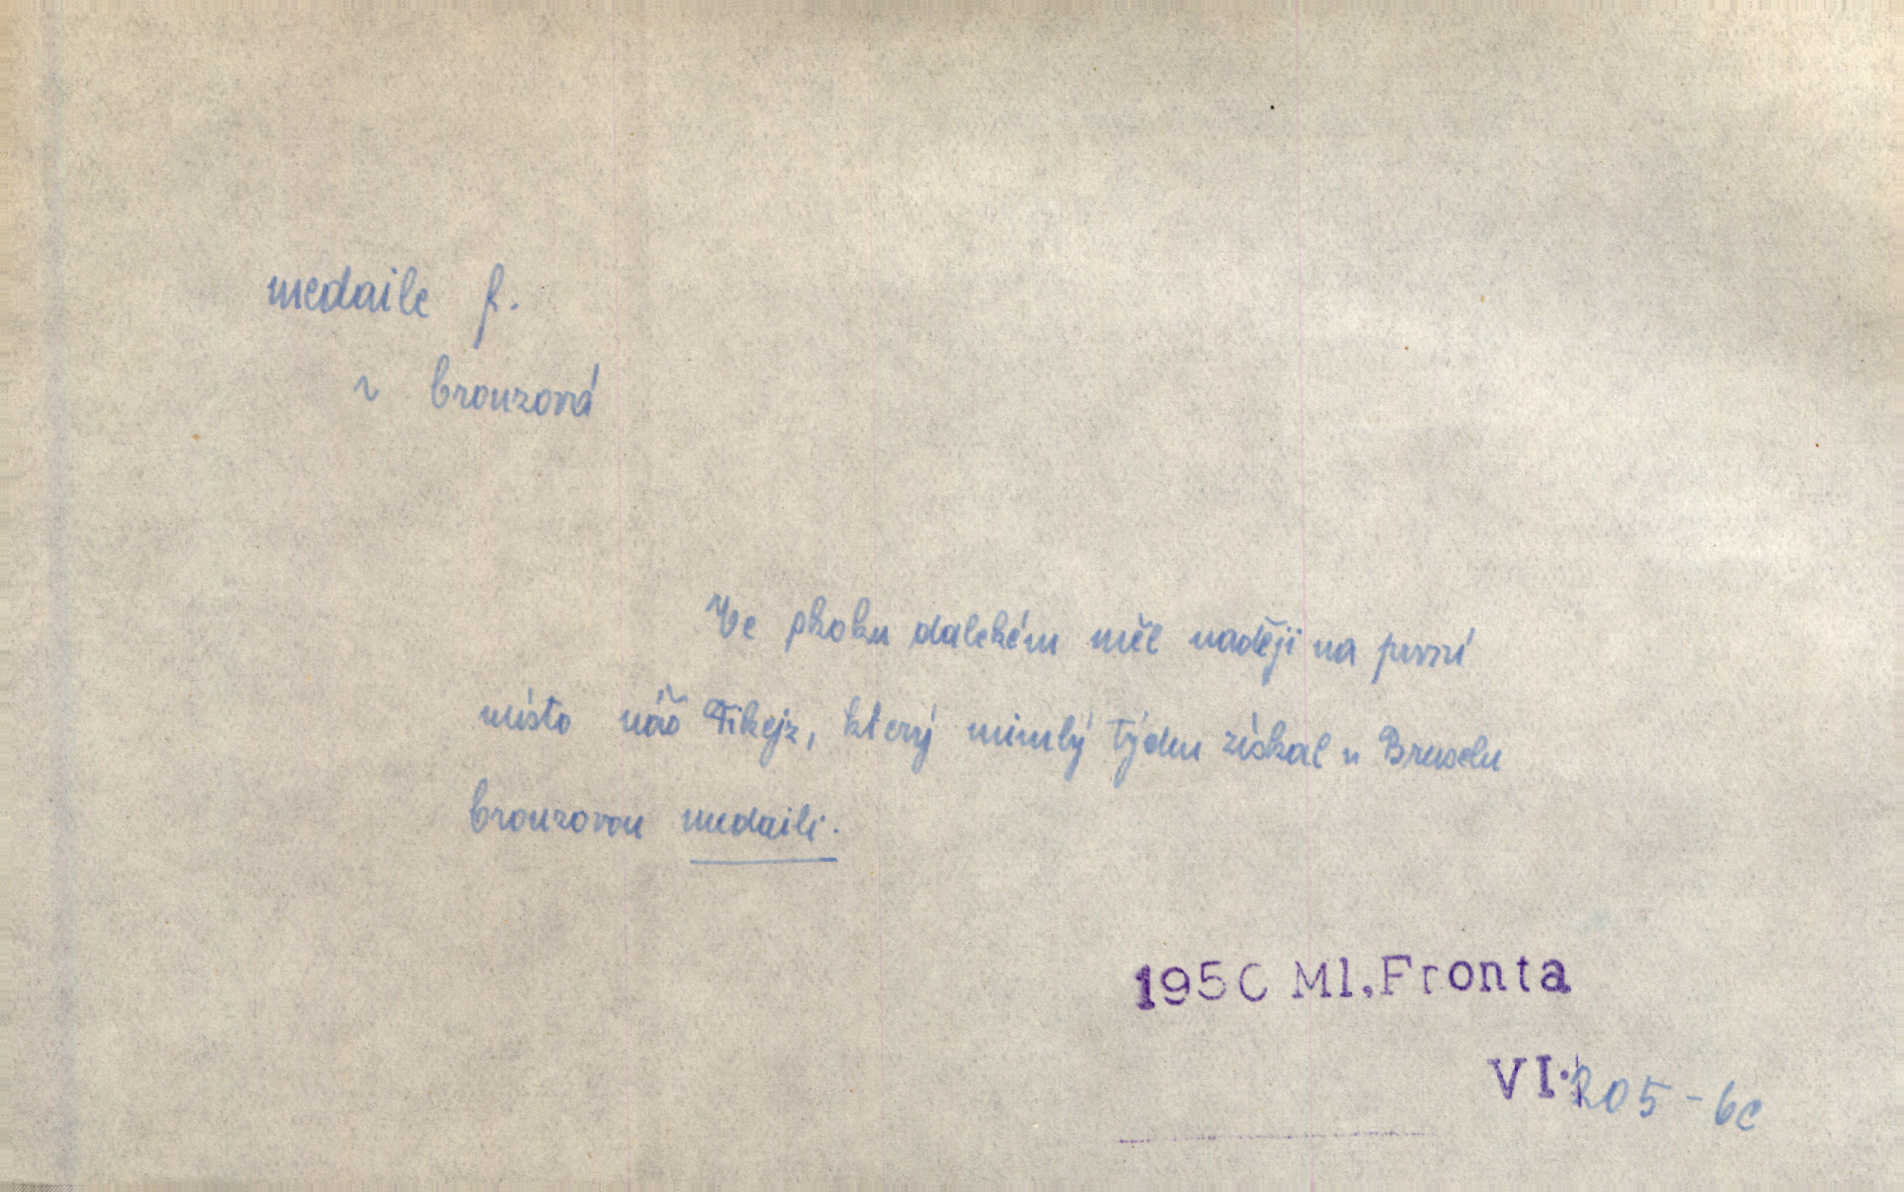 medaile f.
~ bronzová
Ve skoku dalekém měl naději na první
místo náš Fikejz, který minulý týden získal v Bruselu
bronzovou medaili.
1950 Ml. Fronta
VI. 205-6c